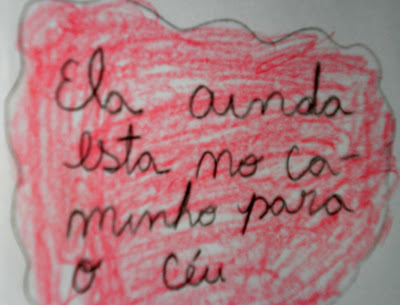 Ela ainda
esta no ca-
minho para
o céu